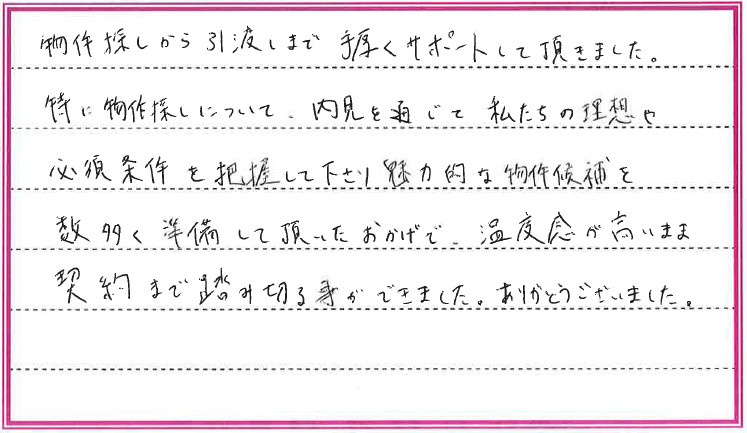 物件探しから引渡しまで手厚くサポートして頂きました。
特に物件探しについて、内見を通じて私たちの理想や
必須条件を把握して下さり魅力的な物件候補を
数多く準備して頂いたおかげで、温度感が高いまま
契約まで踏み切る事ができました。ありがとうございました。